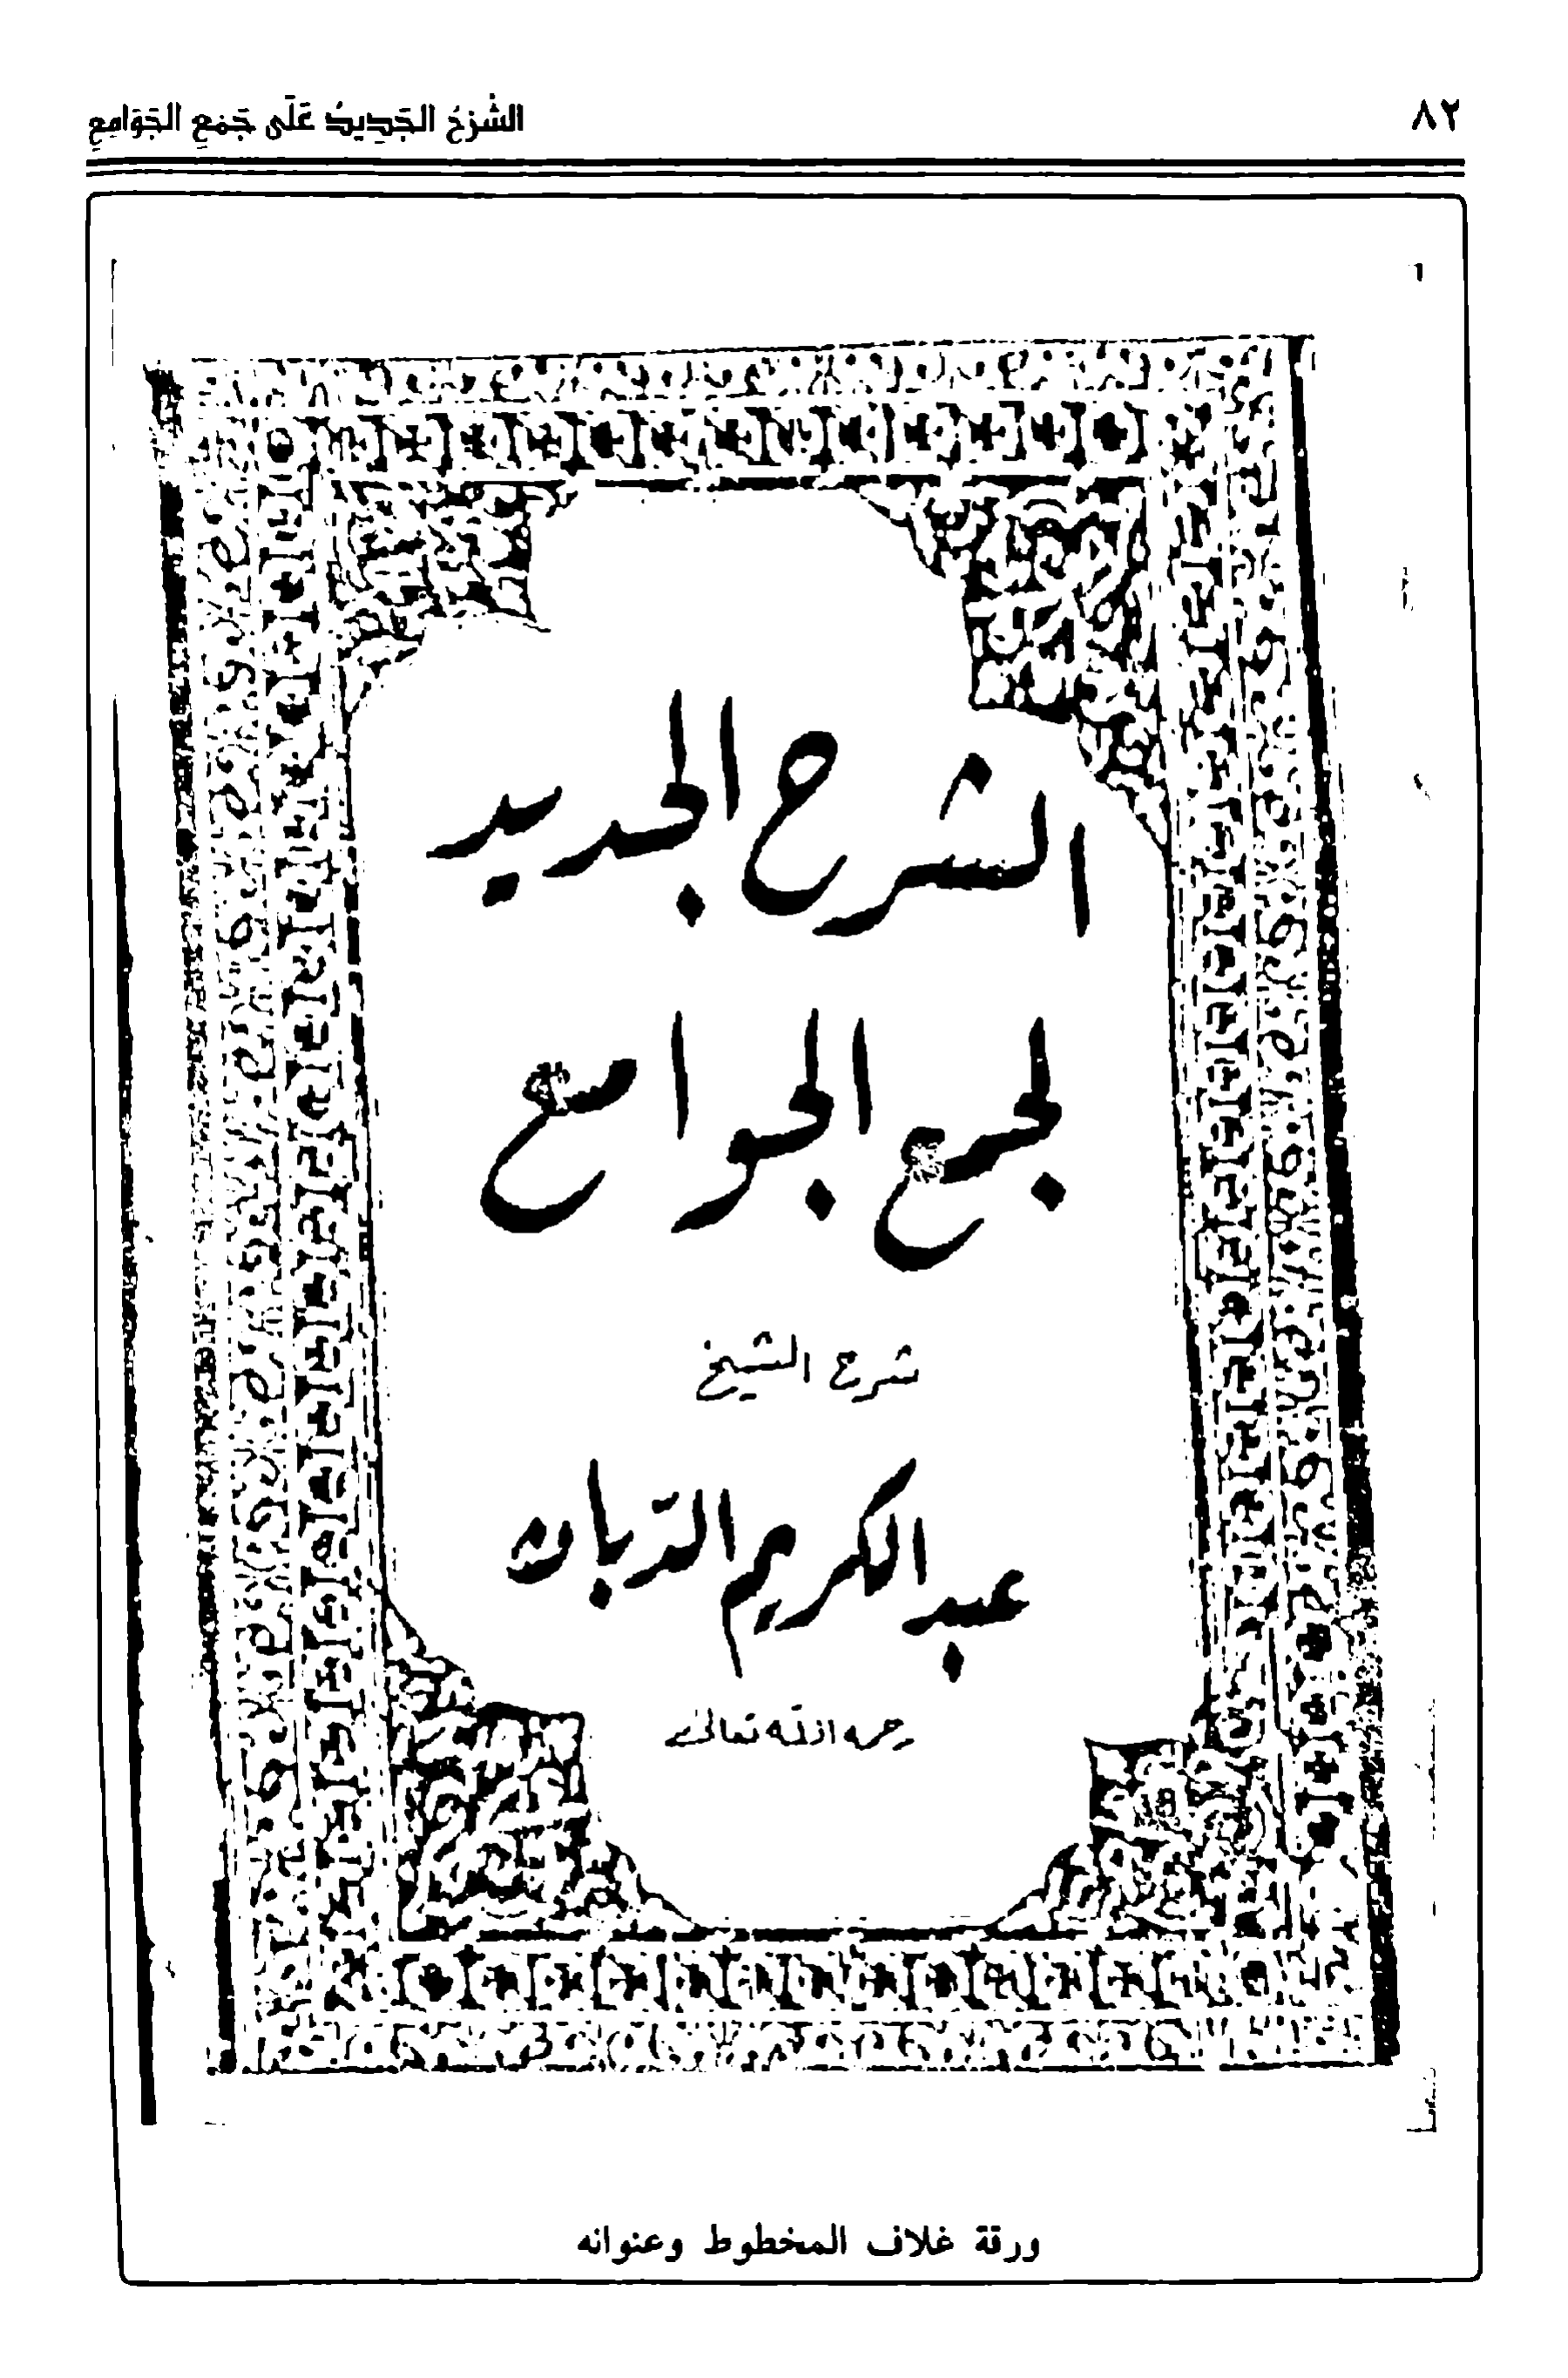 ٨٢
الشَّرْحُ الجَدِيدُ عَلَى جَمْعِ الجَوَامِعِ
الشرح الجديد
لجمع الجوامع
شرح الشيخ
عبد الكريم الدّبان
رحمه الله تعالى
ورقة غلاف المخطوط وعنوانه